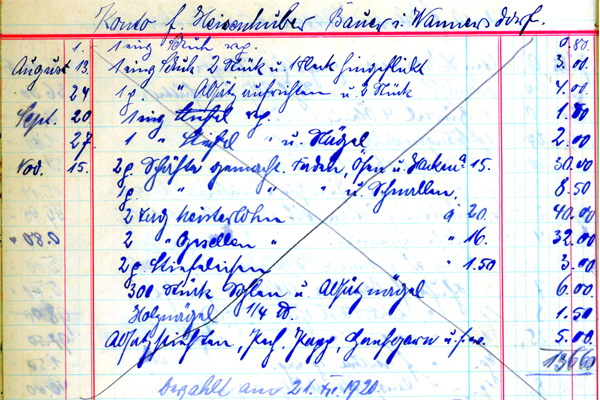 Konto f. Heisenhuber Bauer i. Wannersdorf.
1. 1 eing Schuh rep. 0.80
August 13. 1 eing Schuh 2 Stück u. 1 Fleck hingeflickt 3.00
24 1 p. " Absätz aufrichten u. 2 Stück 4.00
Sept. 20 1 eing Stiefel rep. 1.80
27. 1 " Stiefel " u. Nägel 2.00
Nov. 15. 2 p. Schäfte gemacht. Faden, Ösen u. Hacken a 15. 30.00
p. " " " u. Schnallen. 8.50
2 Meisterlohn a 20. 40.00
0.80 2 " Gesellen " " 16. 32.00
2 p. Stiefeleisen " 1.50 3.00
300 Stück Sohlen u. Absätznägel 6.00
Holznägel 1/4 1.50
Absatzstiften, Pech, Papp, Hanfgarn u.s.w. 5.00
136.60
Bezahlt am 21. 1920.